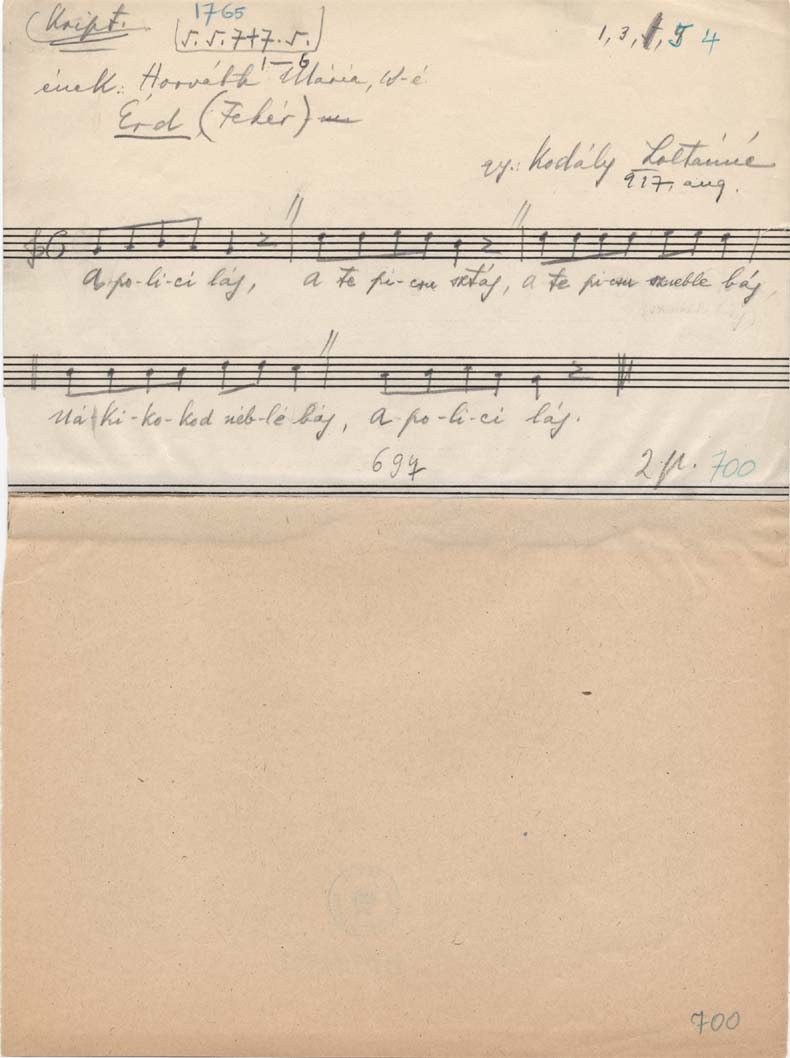 Kript.
1765
5. 5. 7+7. 5.
1, 3, 5 4
1–6
ének: Horváth Mária,
Érd (Fehér)
gy.: Kodály Zoltánné
917. aug.
A-po-li-ci láj, a te pi-czu sztáj, a te pi-czu szneble báj,
Ná-ki-ko-kod néb-lé báj, a-po-li-ci láj.
697
2 p. 700
700